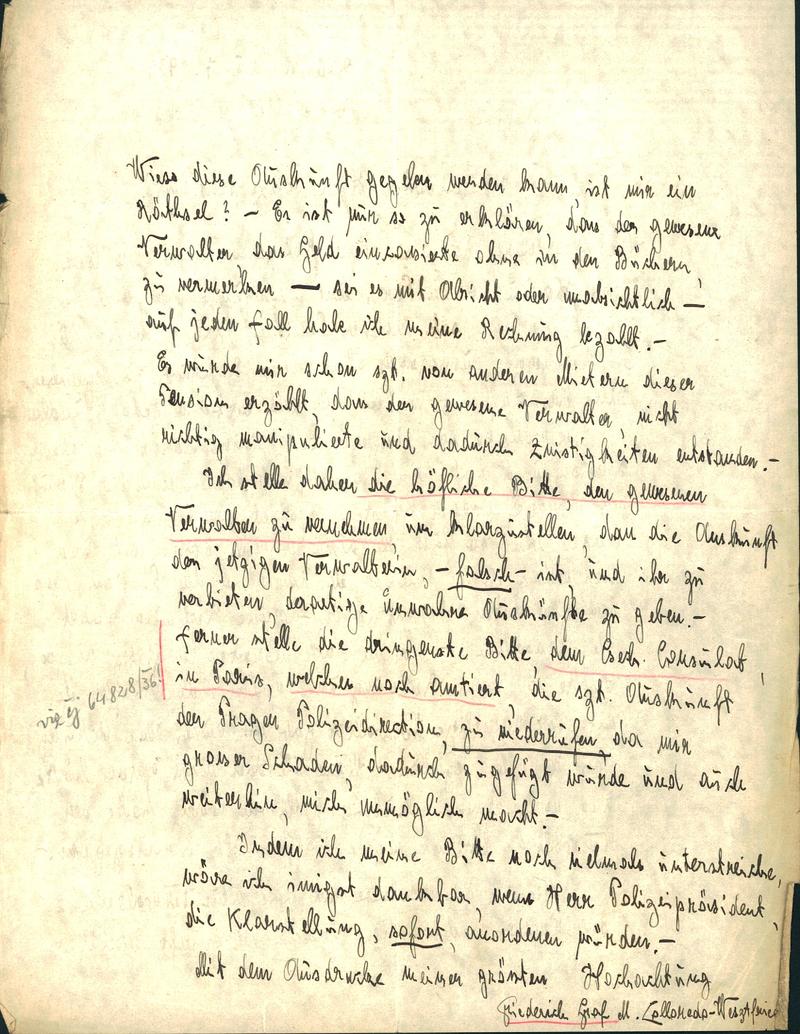 Wieso diese Auskunft gegeben werden kann, ist mir ein
Räthsel? – Es ist mir so zu erklären, das der gewesene
Verwalter das Geld eincassierte ohne in den Büchern,
zu vermerken — sei es mit Absicht oder unabsichtlich —
auf jeden Fall habe ich meine Rechnung bezahlt.–
Es würde mir schon szt. von anderen Mietern dieser
Pension erzählt, das der gewesene Verwalter, nicht
richtig manipulierte und dadurch Zwistigkeiten entstanden.–
Ich stelle daher die höfliche Bitte, den gewesenen
Verwalter zu vernehmen, um klarzustellen, das die Auskunft
der jetzigen Verwalterin, – falsch – ist, und ihr zu
verbieten, derartige unwahre Auskünfte zu geben.–
Ferner stelle die dringenste Bitte, dem Csech. Consulat,
in Paris, welches noch amtiert, die szt. Auskunft
der Prager Polizeidirection, zu wiederrufen, da mir
grosser Schaden, dadurch zugefügt würde und auch
weiterhin, mich unmöglich macht.–
64828/36!
Indem ich meine Bitte noch vielmals unterstreiche,
wäre ich innigst dankbar, wenn Herr Polizeipräsident,
die Klarstellung, sofort, anordenen würden.–
Mit dem Ausdrucke meiner grössten Hochachtung
Friederich Graf M. Colloredo-